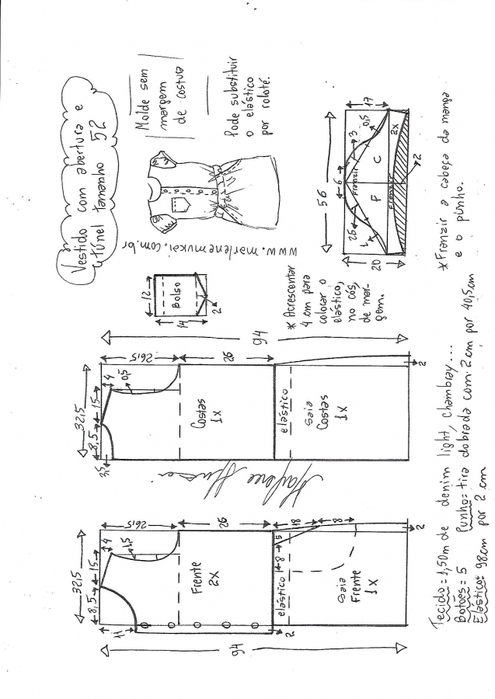 Vestido com abertura e
túnel tamanho 52
Molde sem
margem
de costura
Pode substituir
o elástico
por rolotê.
www.marlenemukai.com.br
12
Bolso
14
2
* Acrescentar
4 cm para
colocar o
elástico,
no cós,
de mar-
gem.
56
17
6
3
0,5
25
Franzir
F
C
2x
20
2
* Franzir a cabeça da manga
e o punho.
94
32,5
8,5
15
4
3,5
0,5
26,5
26
Costas
1x
elástico
saia
Costas
1x
2
Marlene Mukai
32,5
8,5
15
4
11
1,5
26,5
26
Frente
2x
elástico
8
5
18
18
saia
Frente
1x
2
2
94
Tecido = 1,50m de denim light, chambray...
Botões = 5 Punho = tira dobrada com 2 cm por 40,5cm
Elástico = 98cm por 2 cm